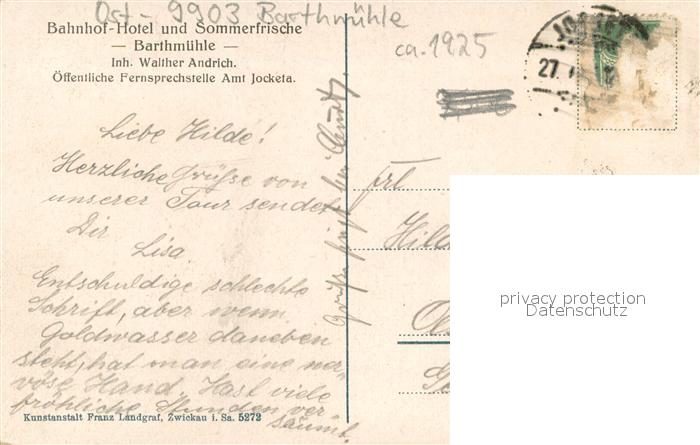 Ost - 9903 Barthmühle
Bahnhof-Hotel und Sommerfrische
— Barthmühle —
Inh. Walther Andrich.
Öffentliche Fernsprechstelle Amt Jocketa.
ca. 1925
27.
Liebe Hilde!
Herzliche Grüsse von
unserer Tour sendet
Dir
Lisa.
Entschuldige schlechte
Schrift, aber wenn
Goldwasser daneben
steht, hat man eine ner„
vöse Hand. Hast viele
fröhliche Stunden ver„
säumt.
Frl
Hild
privacy protection
Datenschutz
Kunstanstalt Franz Landgraf, Zwickau i. Sa. 5272